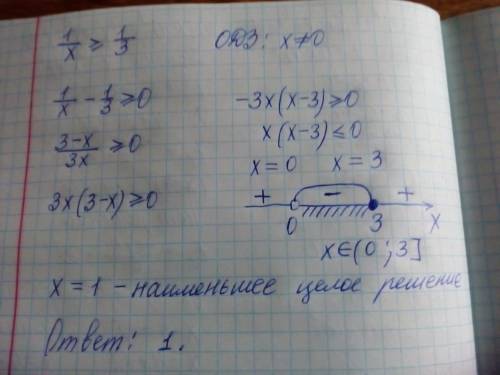 1/x ≥ 1/3
ОДЗ: x≠0
1/x - 1/3 ≥ 0
(3-x)/3x ≥ 0
3x(3-x) ≥ 0
-3x(x-3) ≥ 0
x(x-3) ≤ 0
x = 0 x = 3
+ - +
0 3 x
x∈(0; 3]
x = 1 - наименьшее целое решение
Ответ: 1.